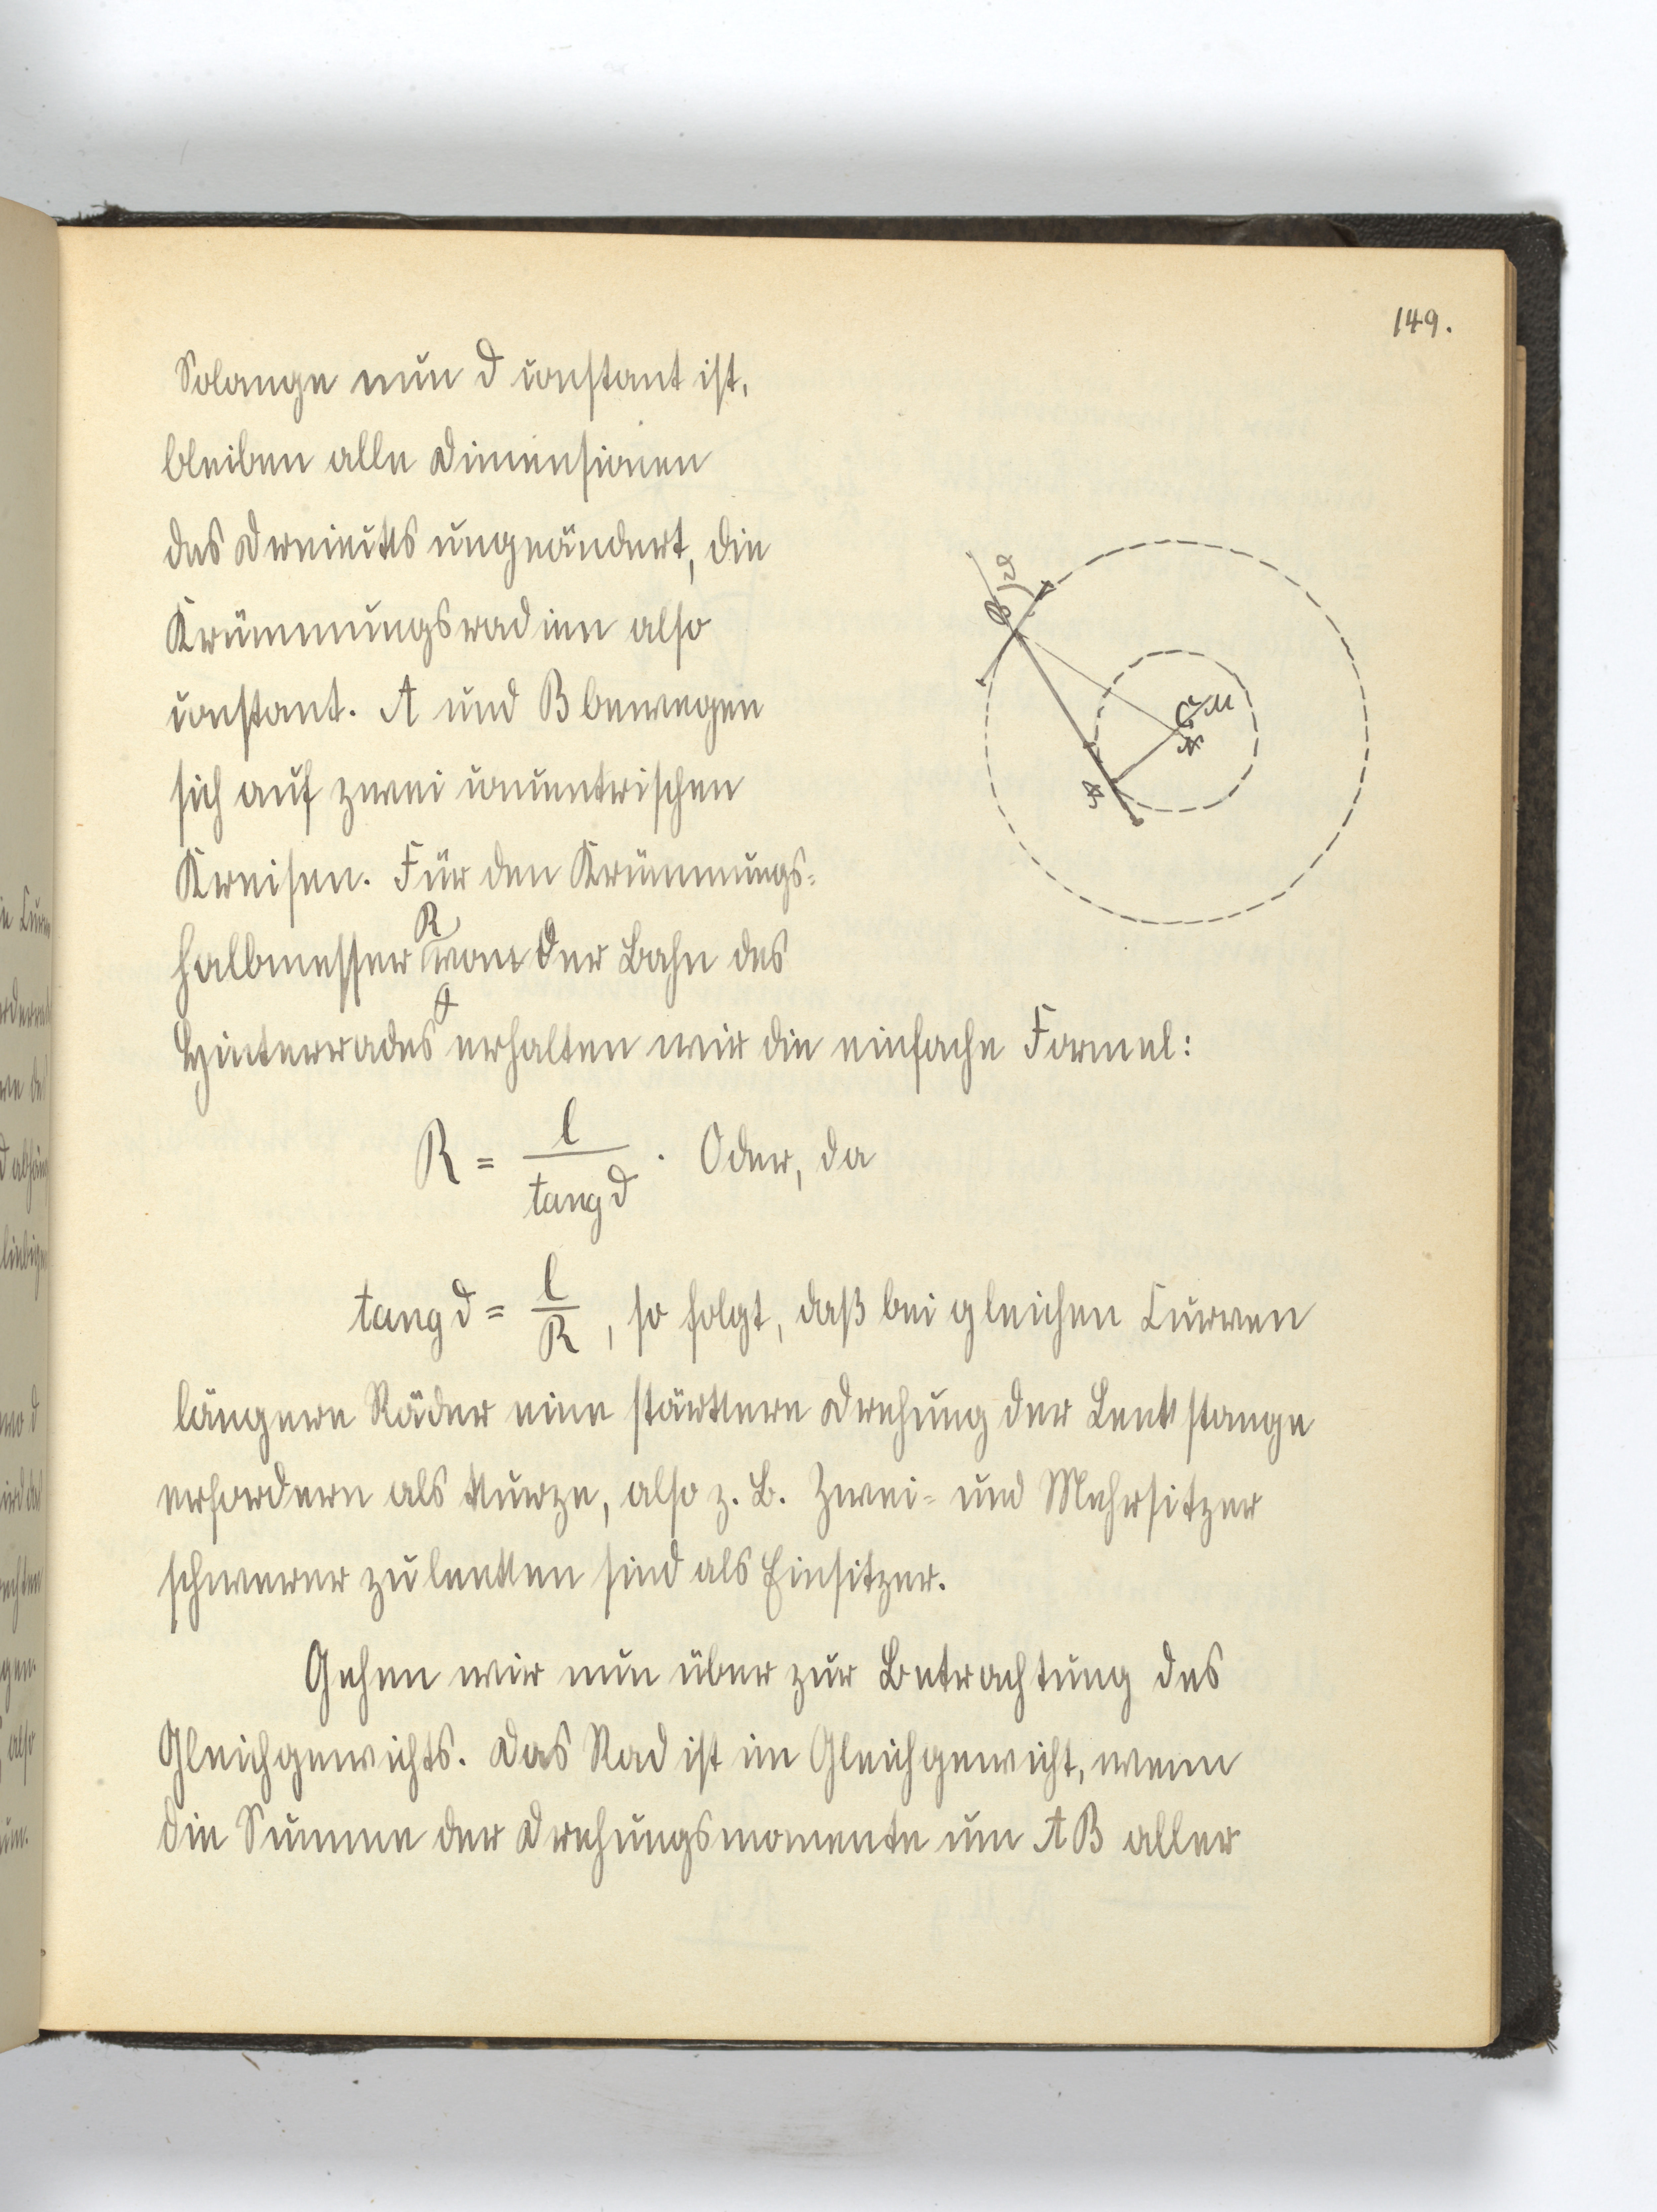 149.
Solange nun δ constant ist,
bleiben alle Dimensionen
des Dreiecks ungeändert, die
Krümmungsradien also
constant. A und B bewegen
sich auf zwei concentrischen
Kreisen. Für den Krümmungs=
halbmesser R von der Bahn des
Hinterrades A erhalten wir die einfache Formel:
R = l / tang δ . Oder, da
tang δ = l / R , so folgt, daß bei gleichen Curven
längere Räder eine stärkere Drehung der Lenkstange
erfordern als kurze, also z. B. Zwei- und Mehrsitzer
schwerer zu lenken sind als Einsitzer.
Gehen wir nun über zur Betrachtung des
Gleichgewichts. Das Rad ist im Gleichgewicht, wenn
die Summe der Drehungsmomente um AB aller
B δ
M
A